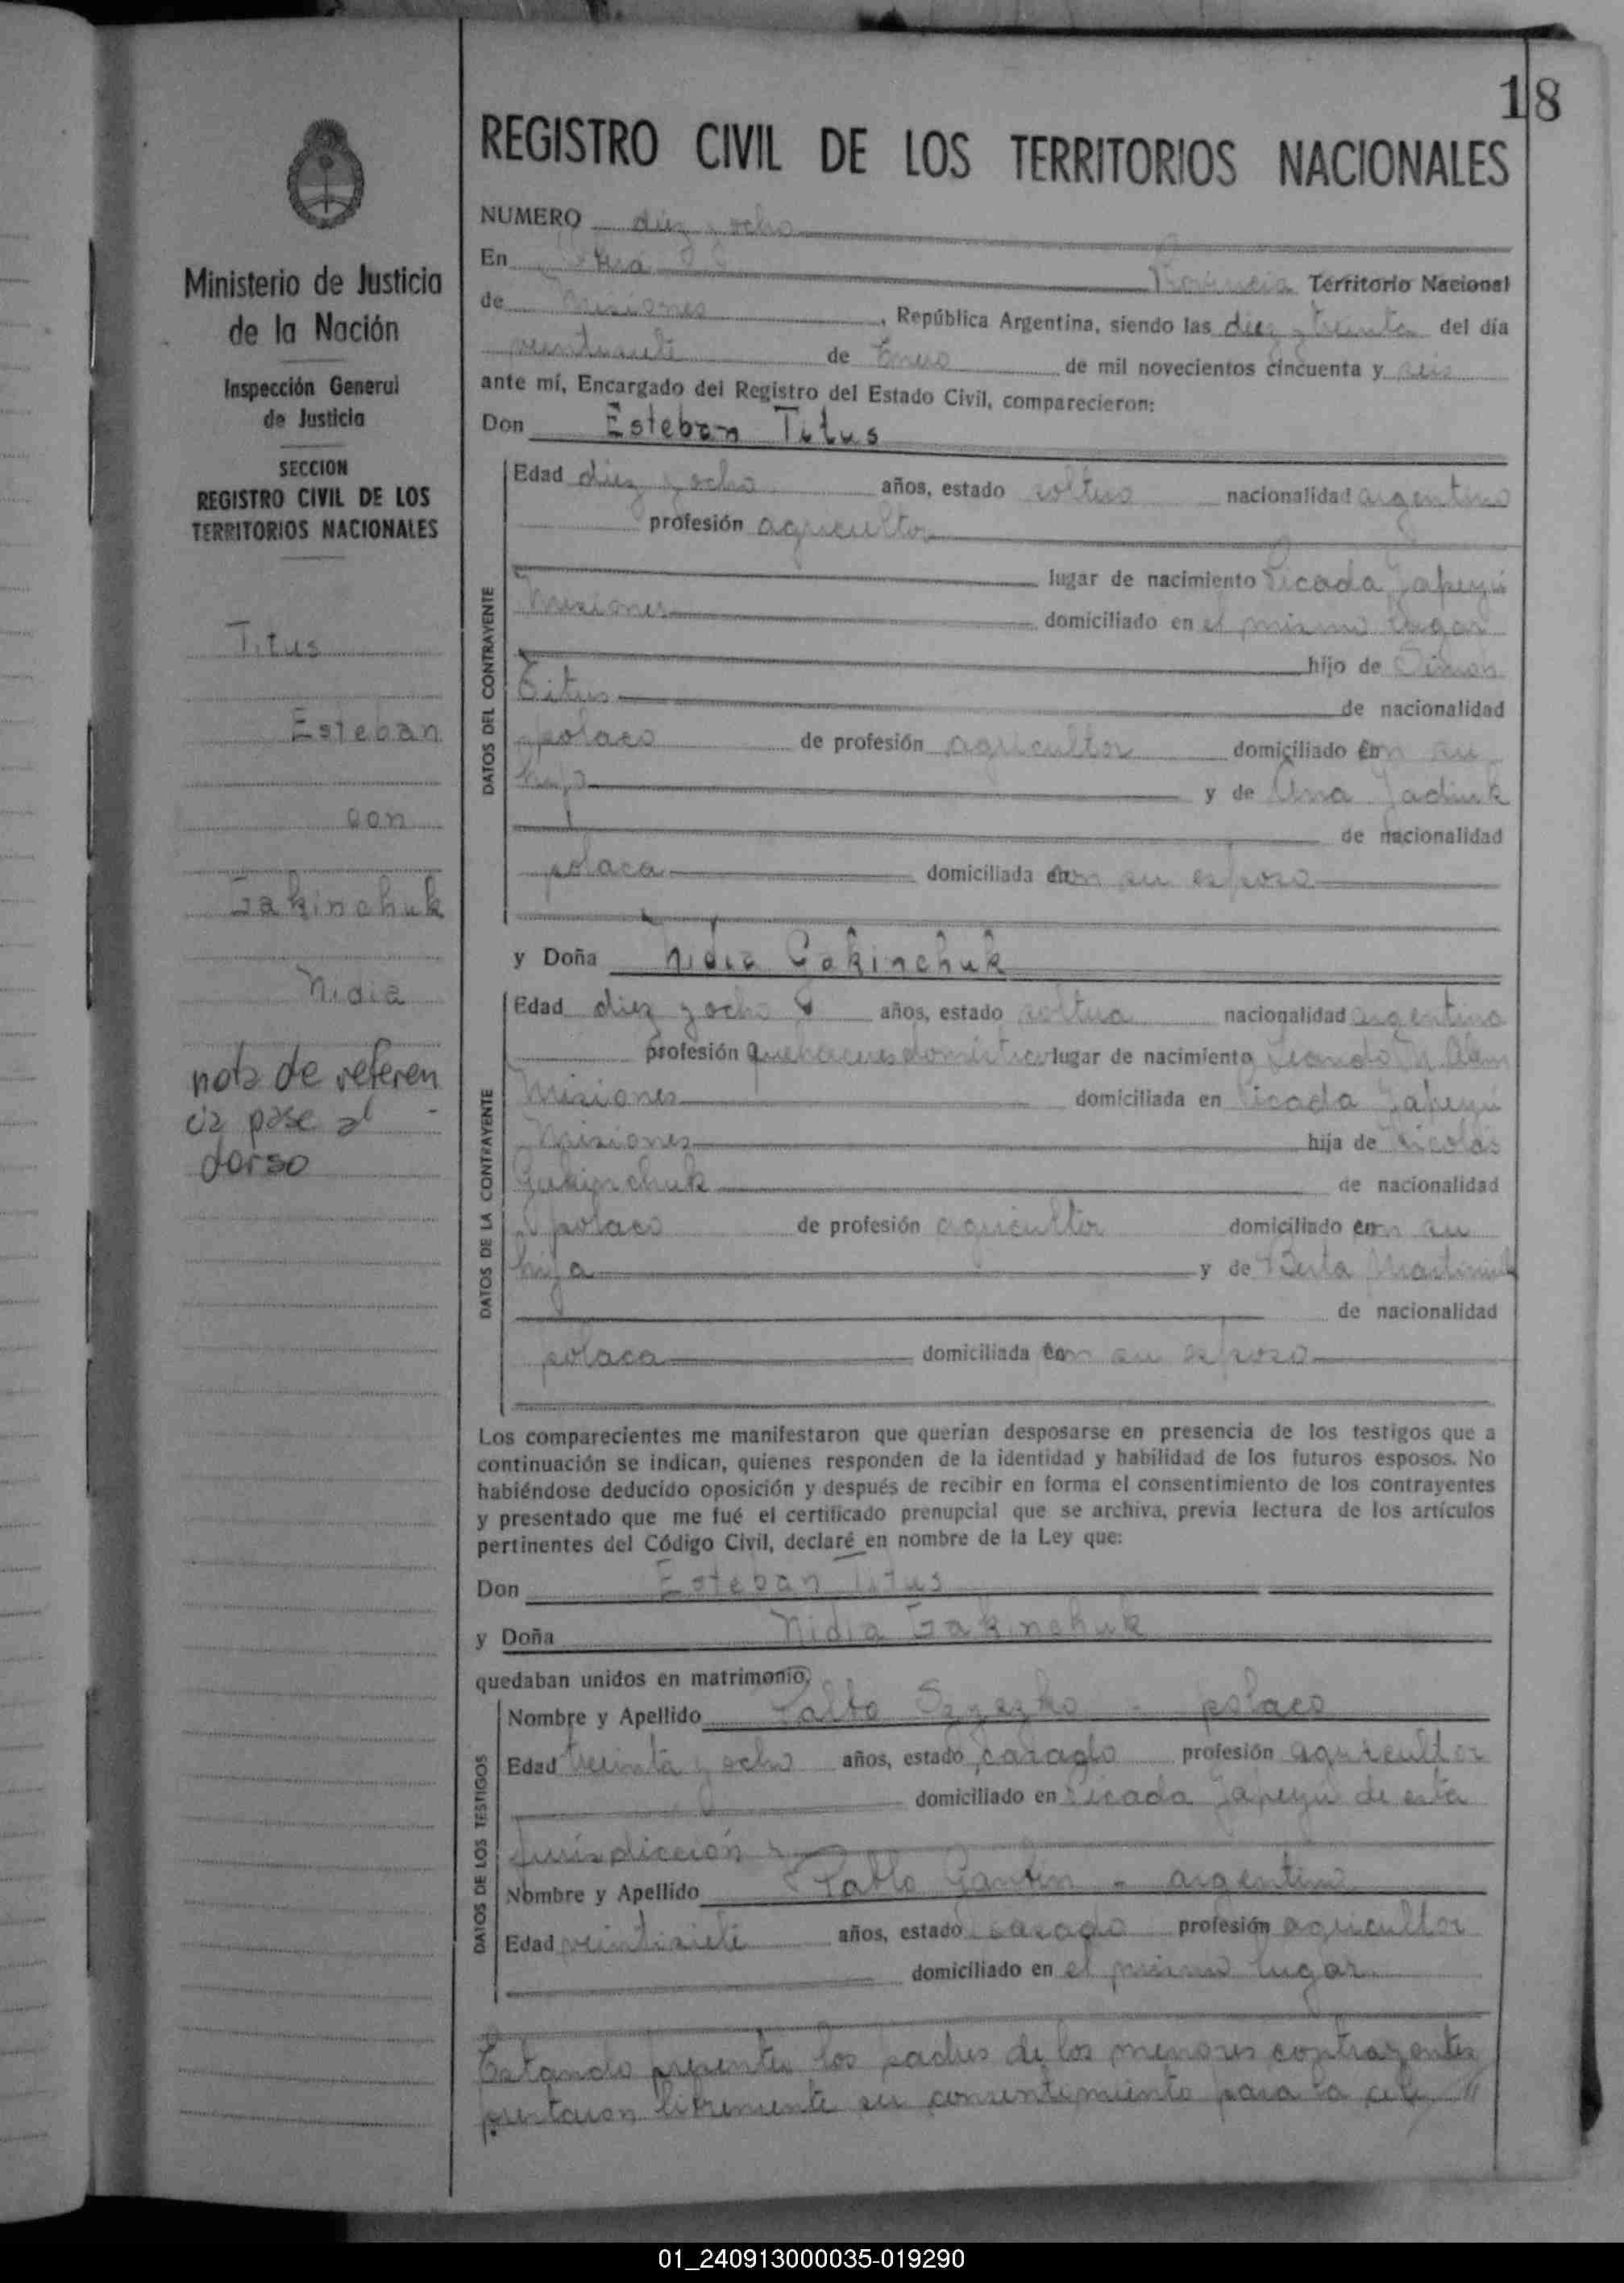 18
REGISTRO CIVIL DE LOS TERRITORIOS NACIONALES
Ministerio de Justicia
de la Nación
Inspección General
de Justicia
SECCION
REGISTRO CIVIL DE LOS
TERRITORIOS NACIONALES
Titus
Esteban
con
Gakinchuk
Nidia
nota de referen
cia pase al -
dorso
NUMERO diez y ocho
En Provincia Territorio Nacional
de Misiones, República Argentina, siendo las diez y treinta del día
veintisiete de Enero de mil novecientos cincuenta y seis
ante mí, Encargado del Registro del Estado Civil, comparecieron:
Don Esteban Titus
DATOS DEL CONTRAYENTE
Edad diez y ocho años, estado soltero nacionalidad argentino
profesión agricultor
lugar de nacimiento Picada Yapeyú
Misiones domiciliado en el mismo lugar
hijo de Simon
Titus de nacionalidad
polaco de profesión agricultor domiciliado con su
hijo y de Ana
de nacionalidad
polaca domiciliada con su esposo
y Doña Nidia Gakinchuk
DATOS DE LA CONTRAYENTE
Edad diez y ocho años, estado soltera nacionalidad argentina
profesión quehaceres domésticos lugar de nacimiento Leandro N. Alem
Misiones domiciliada en Picada Yapeyú
Misiones hija de Nicolás
Gakinchuk de nacionalidad
polaco de profesión agricultor domiciliado con su
hija y de Berta
de nacionalidad
polaca domiciliada con su esposo
Los comparecientes me manifestaron que querían desposarse en presencia de los testigos que a
continuación se indican, quienes responden de la identidad y habilidad de los futuros esposos. No
habiéndose deducido oposición y después de recibir en forma el consentimiento de los contrayentes
y presentado que me fué el certificado prenupcial que se archiva, previa lectura de los artículos
pertinentes del Código Civil, declaré en nombre de la Ley que:
Don Esteban Titus
y Doña Nidia Gakinchuk
quedaban unidos en matrimonio,
DATOS DE LOS TESTIGOS
Nombre y Apellido - polaco
Edad treinta y ocho años, estado casado profesión agricultor
domiciliado en Picada Yapeyú de esta
jurisdicción y
Nombre y Apellido Pablo - argentino
Edad veintisiete años, estado casado profesión agricultor
domiciliado en el mismo lugar
Estando presentes los padres de los menores contrayentes
prestaron libremente su consentimiento para la
01_240913000035-019290